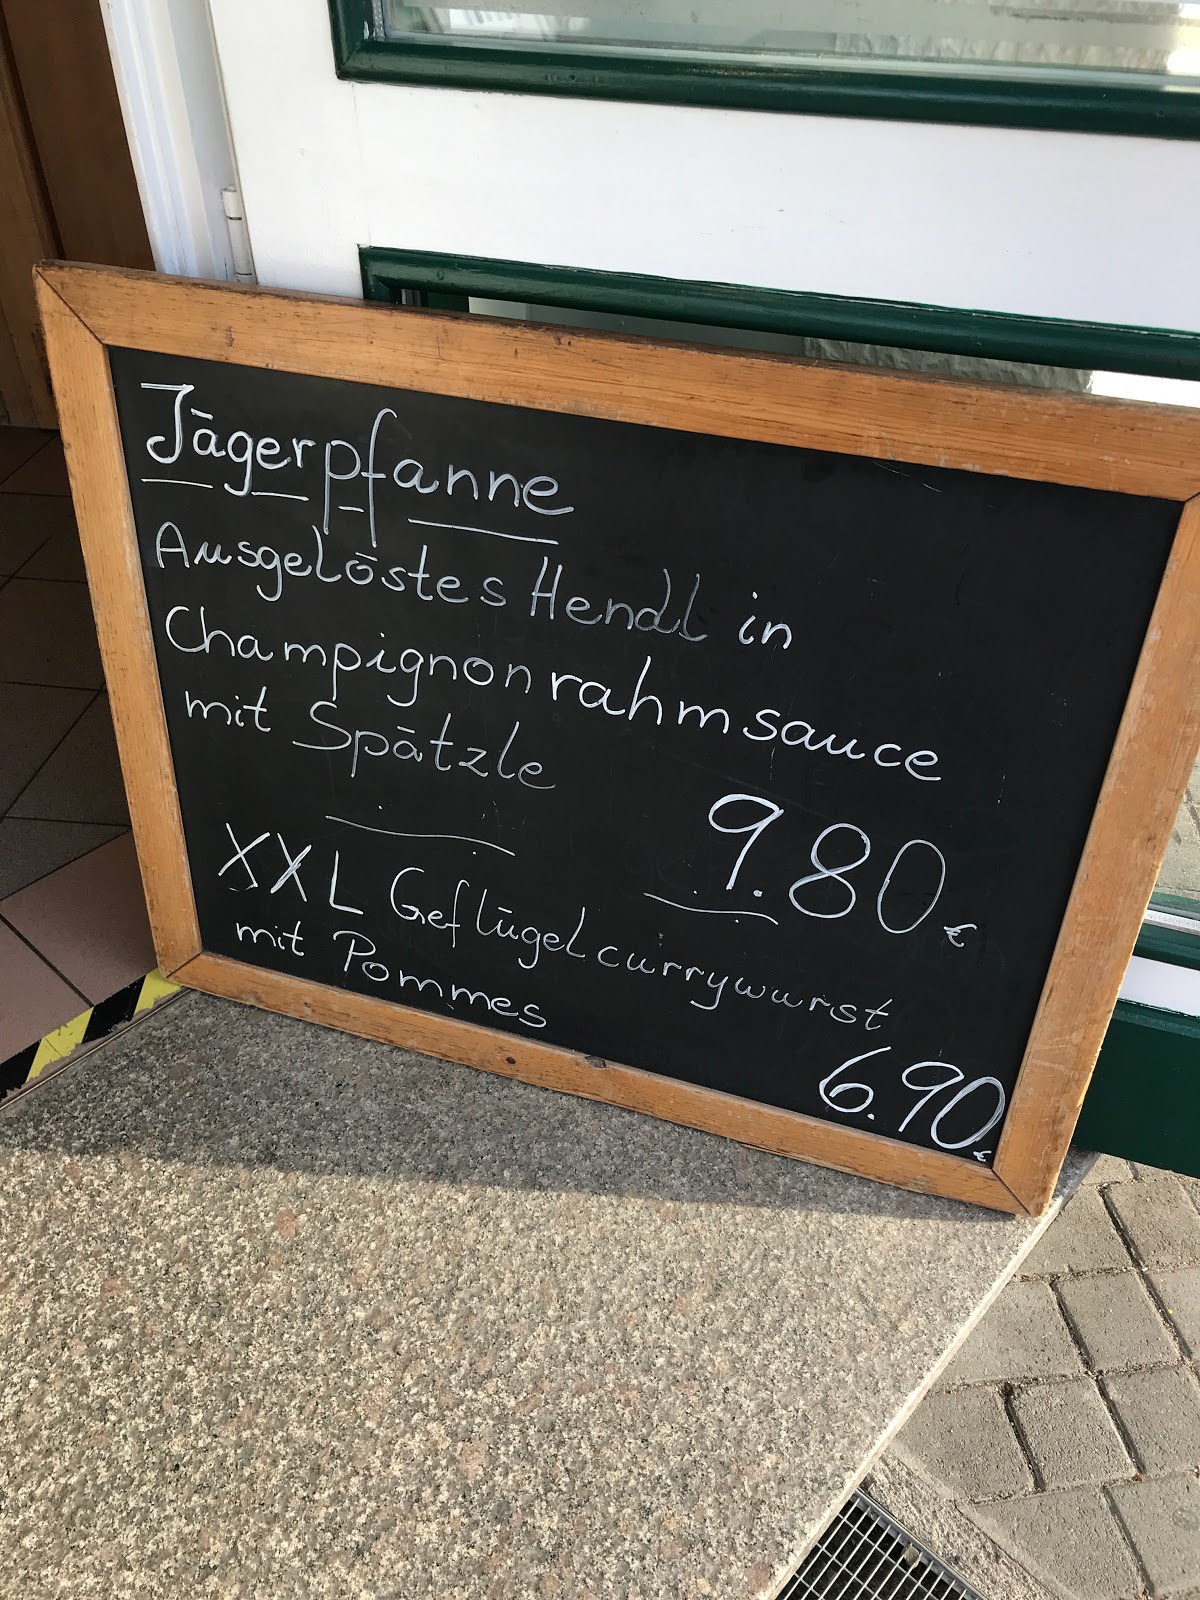 Jägerpfanne
Ausgelöstes Hendl in
Champignonrahmsauce
mit Spätzle
9.80 €
XXL Geflügelcurrywurst
mit Pommes
6.90 €